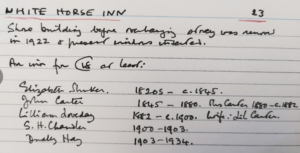 WHITE HORSE INN 23
Shows building before overhanging storey was removed
in 1922 & present windows inserted.
An inn for at least:
Elizabeth 1820s - c.1845.
John Carter 1845 - 1880. Mrs Carter 1880-c.1882
William 1882 - c.1900. Wife: Carter.
S. H. Chandler 1900-1903.
Hay 1903-1934.